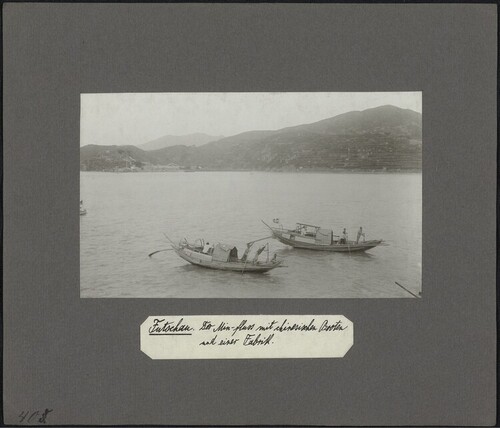 Futschau. Der Min-fluss mit chinesischen Booten
und einer Fabrik.